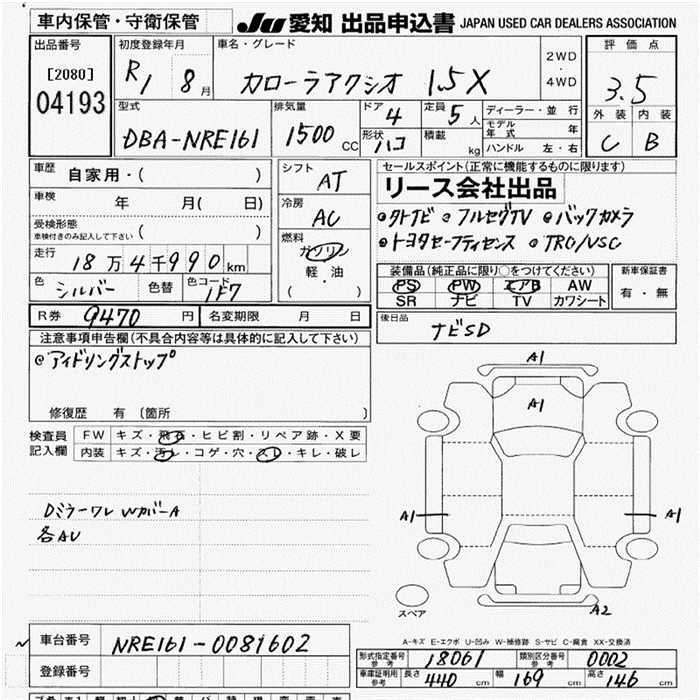 車内保管・守衛保管 JU 愛知 出品申込書 JAPAN USED CAR DEALERS ASSOCIATION
出品番号 初度登録年月 車名・グレード 2WD ・ 4WD 評価点
[2080] R1 8月 カローラアクシオ 1.5X 3.5
04193 型式 排気量 ドア 4 定員 5人 ディーラー・並行 外装 内装
DBA-NRE161 1500 CC 形状 ハコ 積載 kg モデル年式 年 C B
ハンドル 左・右
車歴 自家用・( ) シフト AT セールスポイント(正常に機能するものに限ります)
リース会社出品
車検 年 月( 日) 冷房 AC
◎外ナビ ◎フルセグTV ◎バックカメラ
受検形態 ( )
車検付きのみ記入して下さい
燃料 ガソリン
◎トヨタセーフティセンス ◎TRC/VSC
走行 18万4千990km 軽・油
( )
装備品(純正品に限り○をつけてください) 新車保証書
PS PW エアB AW 有・無
色 シルバー 色替 色コード 1F7
SR ナビ TV カワシート
R券 9470円 名変期限 月 日 後日品 ナビSD
注意事項申告欄(不具合内容等は具体的に記入して下さい)
◎アイドリングストップ
A1
A1
修復歴 有 〔箇所 〕
検査員記入欄 FW キズ・飛石・ヒビ割・リペア跡・X要
内装 キズ・汚レ・コゲ・穴・スレ・キレ・破レ
Dミラーワレ WカバーA
A1 A1
各AU
スペア A2
A-キズ E-エクボ U-凹み W-補修跡 S-サビ C-腐食 XX-交換済
車台番号 NRE161-0081602
形式指定番号 参考 18061 類別区分番号 参考 0002
登録番号
車庫証明用 参考 長さ 440cm 幅 169cm 高さ 146cm